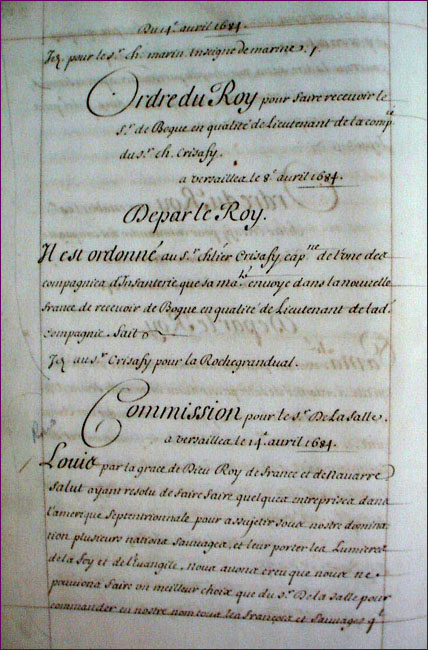 Du 14e. avril 1684.
Id. pour le sr. ch. marin Enseigne de marine.
Ordre du Roy pour faire recevoir le
Sr. de Bogue en qualité de Lieutenant de la compie
du sr. ch. Crisafy.
a versailles le 8e. avril 1684.
De par le Roy.
Il est ordonné au Sr. chlier Crisafy capne de l'une des
compagnies d'Infanterie que sa maté envoye dans la nouvelle
france de recevoir de Bogue en qualité de Lieutenant de lad.
compagnie. fait &
Id. au sr. Crisafy pour la Rochegrandual.
Commission pour le Sr. De La Salle.
a versailles le 14e. avril 1684.
Louis par la grace de Dieu Roy de france et de Navarre
Salut ayant resolu de faire faire quelques entreprises dans
l'amerique Septentrionnale pour assujetir sous nostre domina
tion plusieurs nations Sauvages, et leur porter les Lumieres
de la foy et de l'euangile. Nous auons creu que nous ne
pouuions faire un meilleur choix que du sr. De la salle pour
commander en nostre nom tous les françois et Sauvages qt.